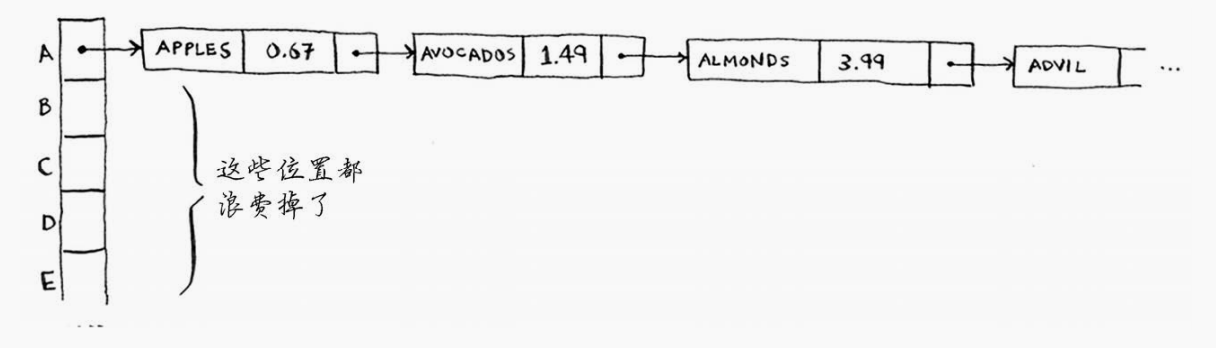 A APPLES 0.67 AVOCADOS 1.49 ALMONDS 3.99 ADVIL ...
B
C
这些位置都
浪费掉了
D
E
....